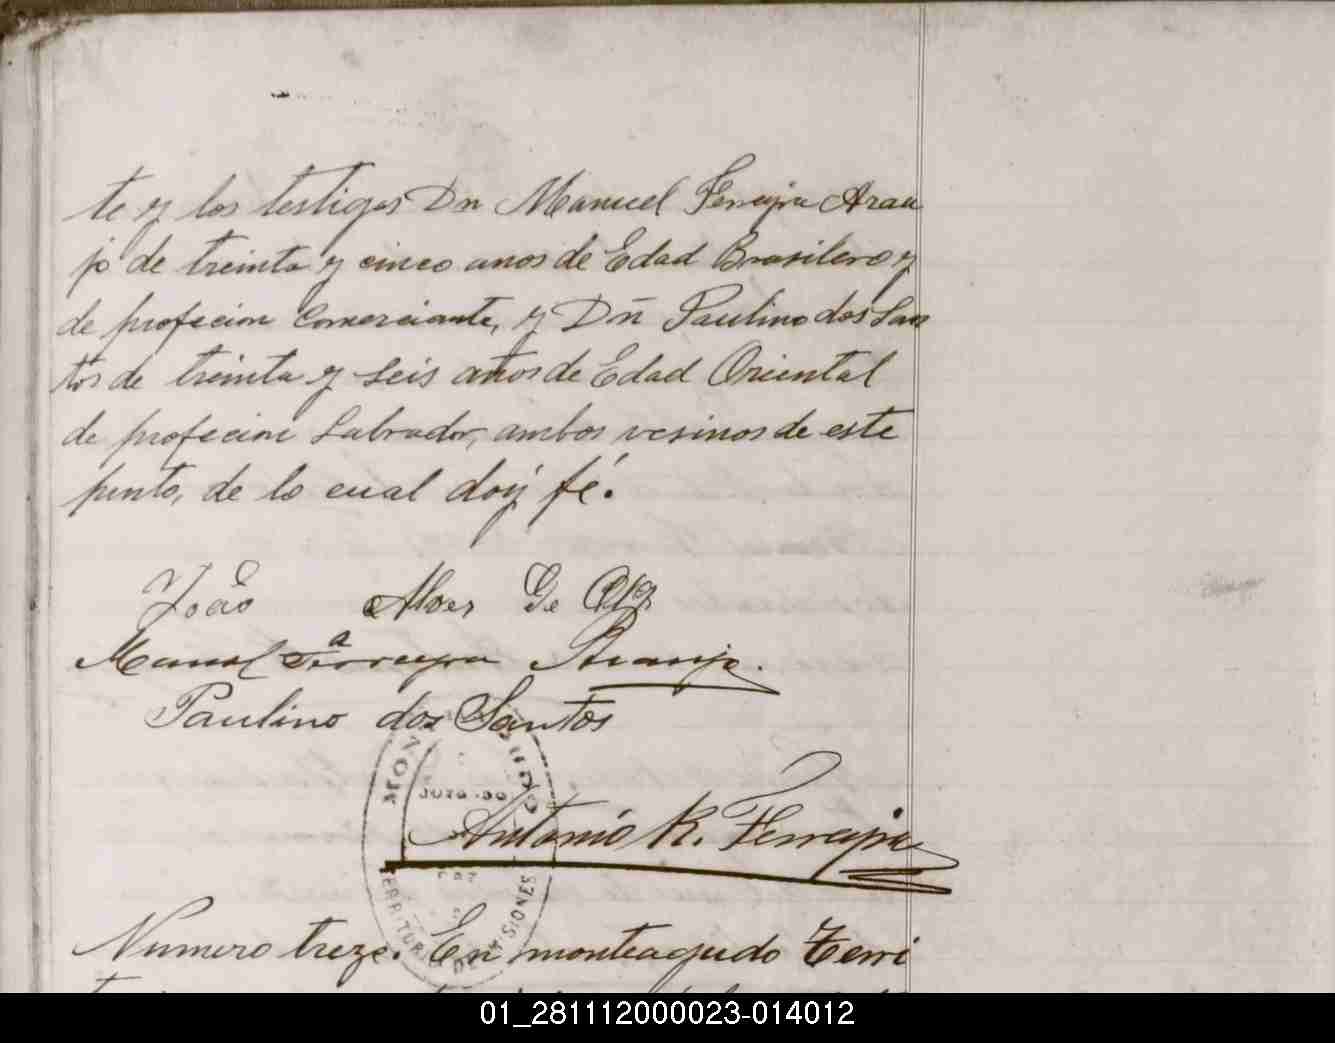 te y los testigos Dn Manuel Ferreyra Arau
jo de treinta y cinco anos de Edad Brasilero y
de profecion Comerciante, y Dñ Paulino dos San
tos de treinta y seis años de Edad Oriental
de profecion Labrador, ambos vesinos de este
punto, de lo cual doy fé.
João Alves De
Manoel Ferreyra Araujo.
Paulino dos Santos
JUZG. DO
Antonio R. Ferreyra
TERRITORIO DE MISIONES
Numero treze. En monteagudo Terri
01_281112000023-014012